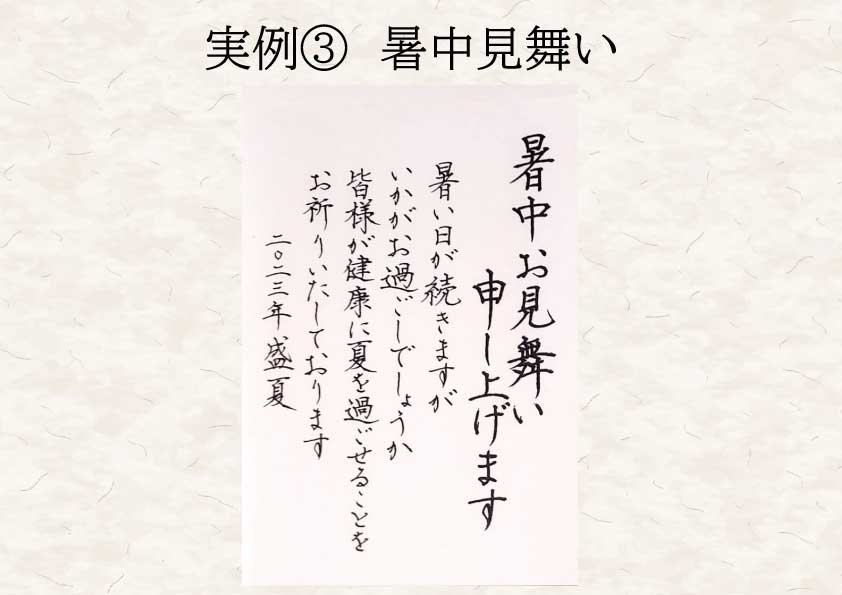 実例③ 暑中見舞い
暑中お見舞い
申し上げます
暑い日が続きますが
いかがお過ごしでしょうか
皆様が健康に夏を過ごせることを
お祈りいたしております
二〇二三年盛夏